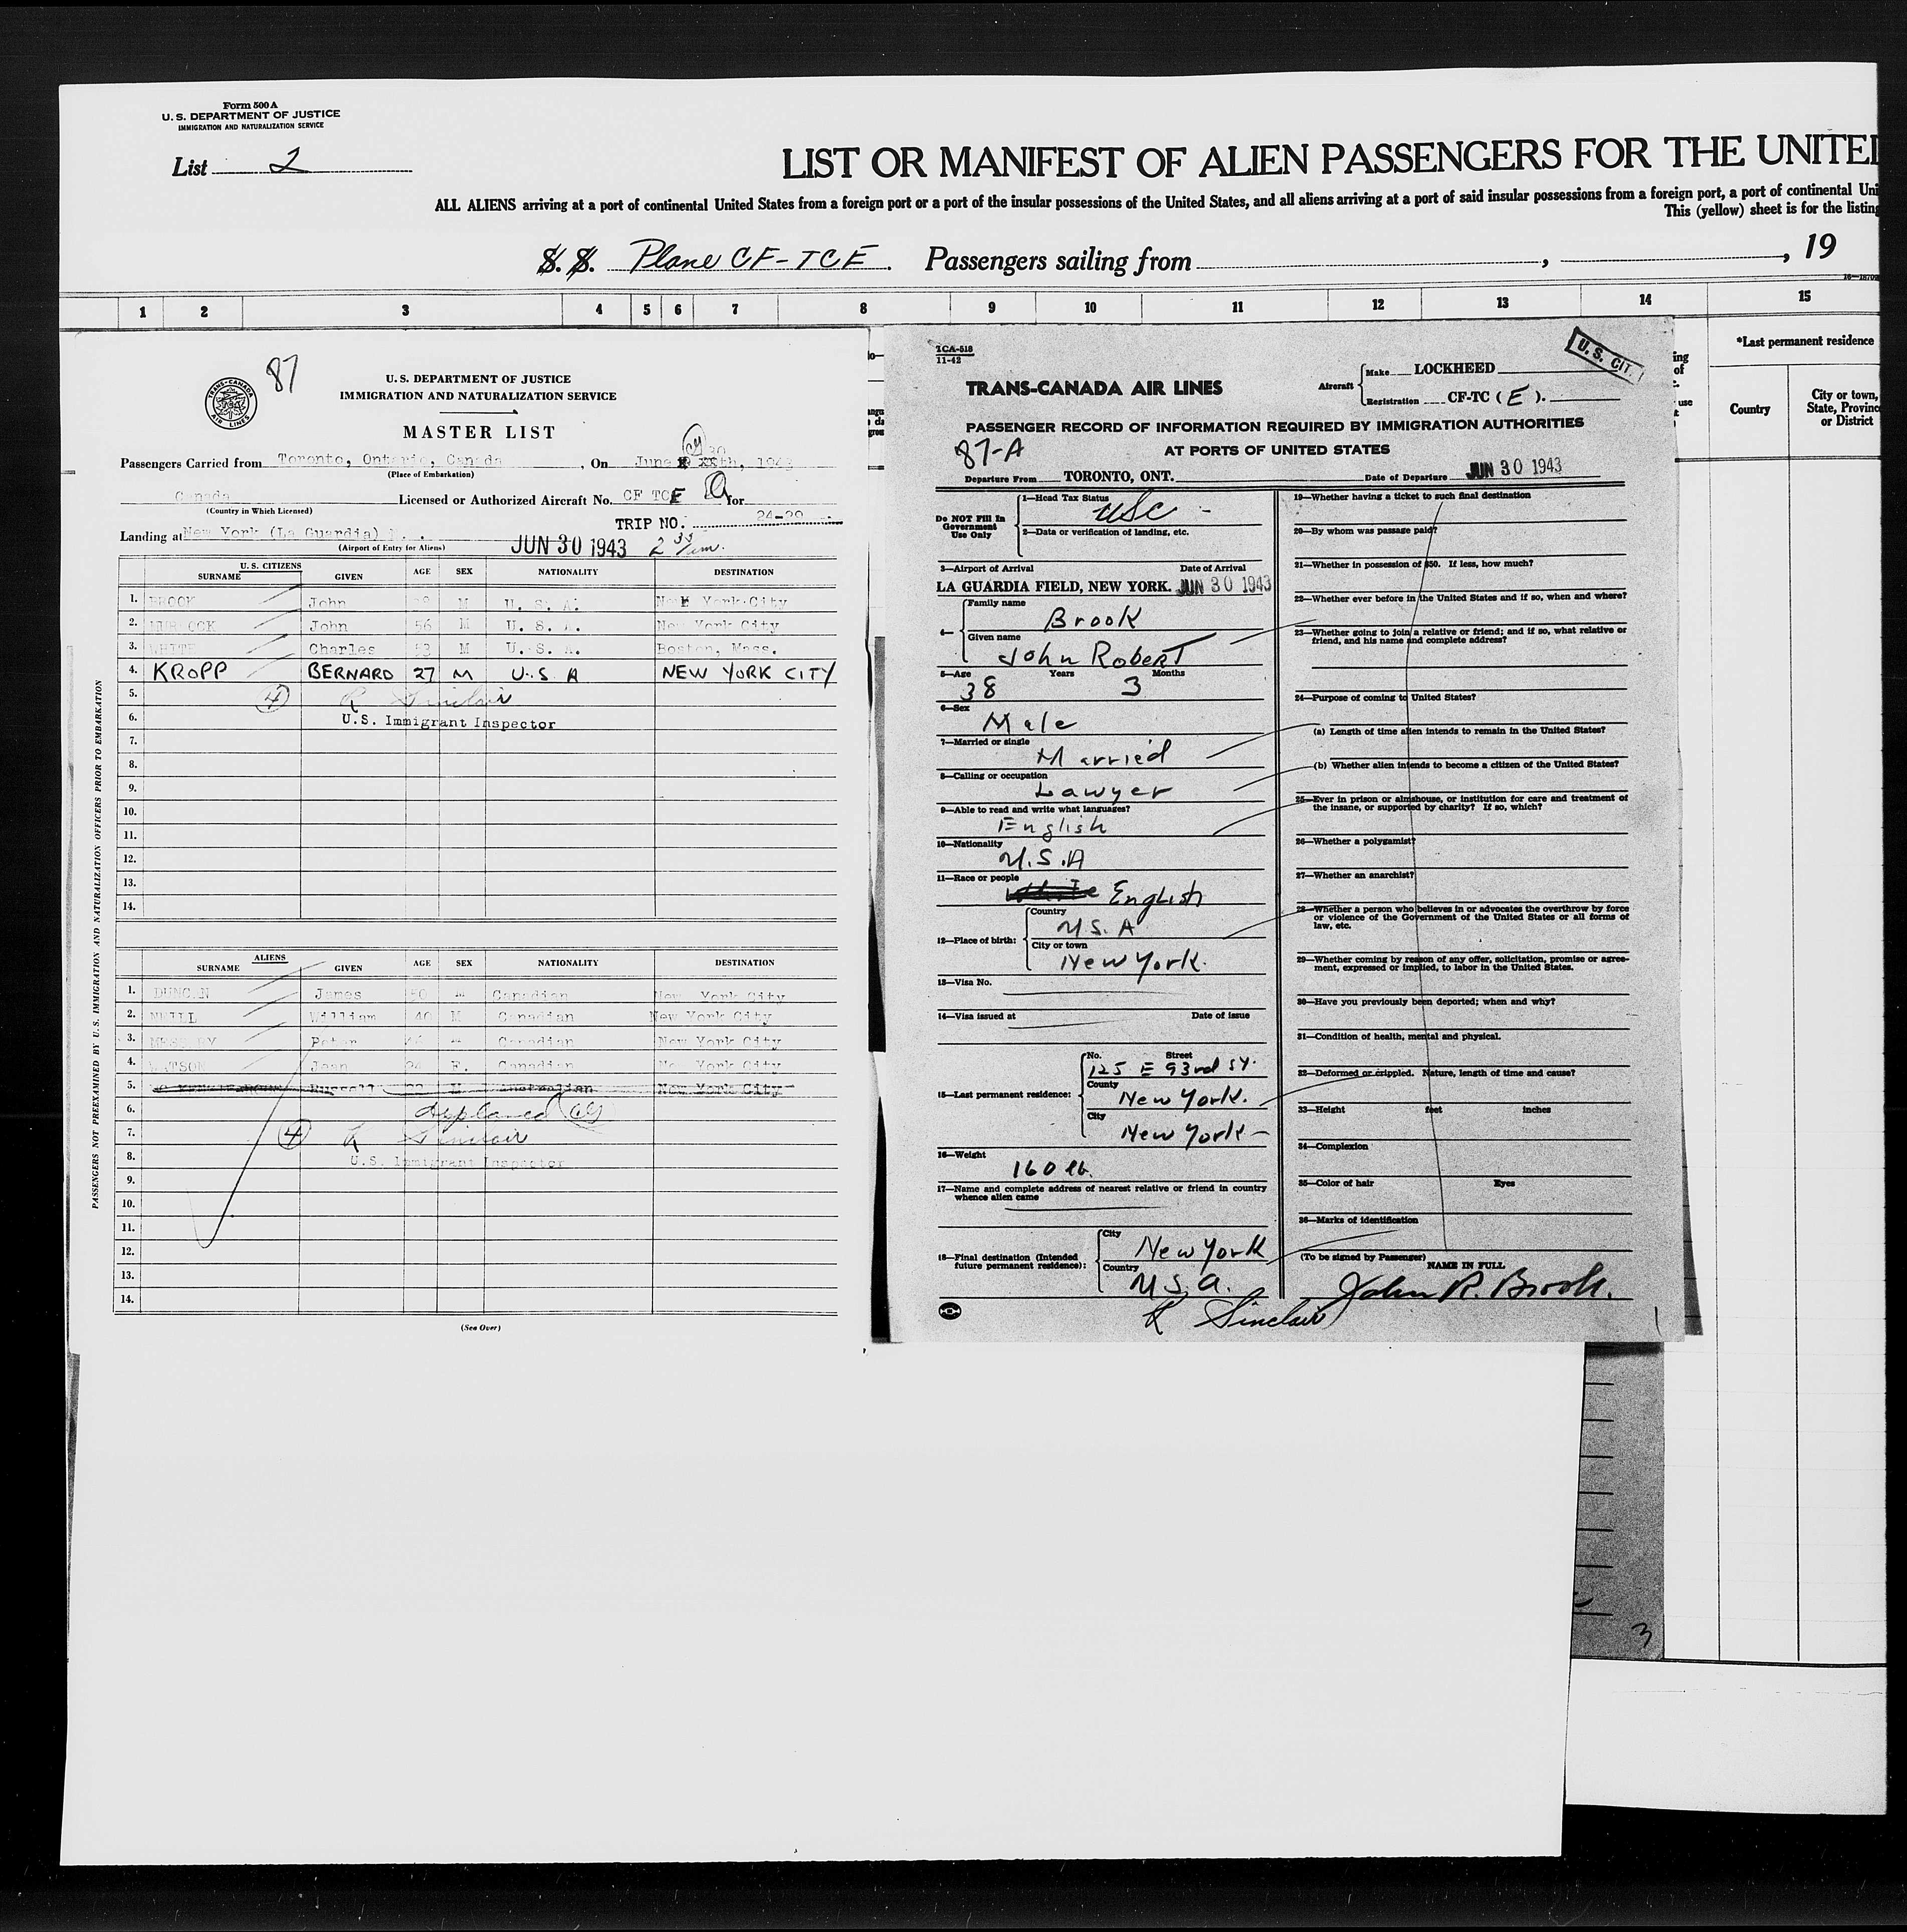 Form 500 A
U. S. DEPARTMENT OF JUSTICE
IMMIGRATION AND NATURALIZATION SERVICE
List 2
LIST OR MANIFEST OF ALIEN PASSENGERS FOR THE UNITED
ALL ALIENS arriving at a port of continental United States from a foreign port or a port of the insular possessions of the United States, and all aliens arriving at a port of said insular possessions from a foreign port, a port of continental Uni
This (yellow) sheet is for the listing
S. S. Plane CF-TCE. Passengers sailing from , , 19
1 2 3 4 5 6 7 8 9 10 11 12 13 14 15
*Last permanent residence
Country
City or town, State, Province or District
87
TRANS-CANADA AIR LINES
U. S. DEPARTMENT OF JUSTICE
IMMIGRATION AND NATURALIZATION SERVICE
MASTER LIST
Passengers Carried from Toronto, Ontario, Canada, On June 30th, 1943
(Place of Embarkation)
Canada Licensed or Authorized Aircraft No. CF TCE for
(Country in Which Licensed)
TRIP NO. 24-29
Landing at New York (La Guardia)
(Airport of Entry for Aliens)
JUN 30 1943 2 33
U. S. CITIZENS
SURNAME GIVEN AGE SEX NATIONALITY DESTINATION
1. BROOK John M U. S. A. New York City
2. John 56 M U. S. A. New York City
3. WHITE Charles 53 M U. S. A. Boston, Mass.
4. KROPP BERNARD 27 M U.S A NEW YORK CITY
5. 4 R Sinclair
6. U.S. Immigrant Inspector
7.
8.
9.
10.
11.
12.
13.
14.
ALIENS
SURNAME GIVEN AGE SEX NATIONALITY DESTINATION
1. DUNCAN James 50 M Canadian New York City
2. NEILL William 40 M Canadian New York City
3. Peter Canadian New York City
4. WATSON Jean F. Canadian New York City
5. Russell M Australian New York City
6. deplaned
7. 4 R Sinclair
8. U.S. Immigrant Inspector
9.
10.
11.
12.
13.
14.
(See Over)
PASSENGERS NOT PREEXAMINED BY U. S. IMMIGRATION AND NATURALIZATION OFFICERS PRIOR TO EMBARKATION
TCA-518
11-42
U. S. CIT.
TRANS-CANADA AIR LINES
Aircraft Make LOCKHEED
Registration CF-TC ( E ).
PASSENGER RECORD OF INFORMATION REQUIRED BY IMMIGRATION AUTHORITIES
AT PORTS OF UNITED STATES
87-A
Departure From TORONTO, ONT. Date of Departure JUN 30 1943
Do NOT Fill In Government Use Only
1—Head Tax Status
USC -
2—Data or verification of landing, etc.
3—Airport of Arrival Date of Arrival
LA GUARDIA FIELD, NEW YORK. JUN 30 1943
4— Family name
Brook
Given name
John Robert
5—Age Years Months
38 3
6—Sex
Male
7—Married or single
Married
8—Calling or occupation
Lawyer
9—Able to read and write what languages?
English
10—Nationality
U.S.A
11—Race or people
White English
12—Place of birth: Country
U.S.A
City or town
New York.
13—Visa No.
14—Visa issued at Date of issue
15—Last permanent residence: No. Street
125 E 93rd St.
County
New York.
City
New York
16—Weight
160 lb.
17—Name and complete address of nearest relative or friend in country whence alien came
18—Final destination (Intended future permanent residence): City
New York
Country
U.S.A.
19—Whether having a ticket to such final destination
20—By whom was passage paid?
21—Whether in possession of $50. If less, how much?
22—Whether ever before in the United States and if so, when and where?
23—Whether going to join a relative or friend; and if so, what relative or friend, and his name and complete address?
24—Purpose of coming to United States?
(a) Length of time alien intends to remain in the United States?
(b) Whether alien intends to become a citizen of the United States?
25—Ever in prison or almshouse, or institution for care and treatment of the insane, or supported by charity? If so, which?
26—Whether a polygamist?
27—Whether an anarchist?
28—Whether a person who believes in or advocates the overthrow by force or violence of the Government of the United States or all forms of law, etc.
29—Whether coming by reason of any offer, solicitation, promise or agreement, expressed or implied, to labor in the United States.
30—Have you previously been deported; when and why?
31—Condition of health, mental and physical.
32—Deformed or crippled. Nature, length of time and cause?
33—Height feet inches
34—Complexion
35—Color of hair Eyes
36—Marks of identification
(To be signed by Passenger)
NAME IN FULL
John R. Brook.
R Sinclair
3